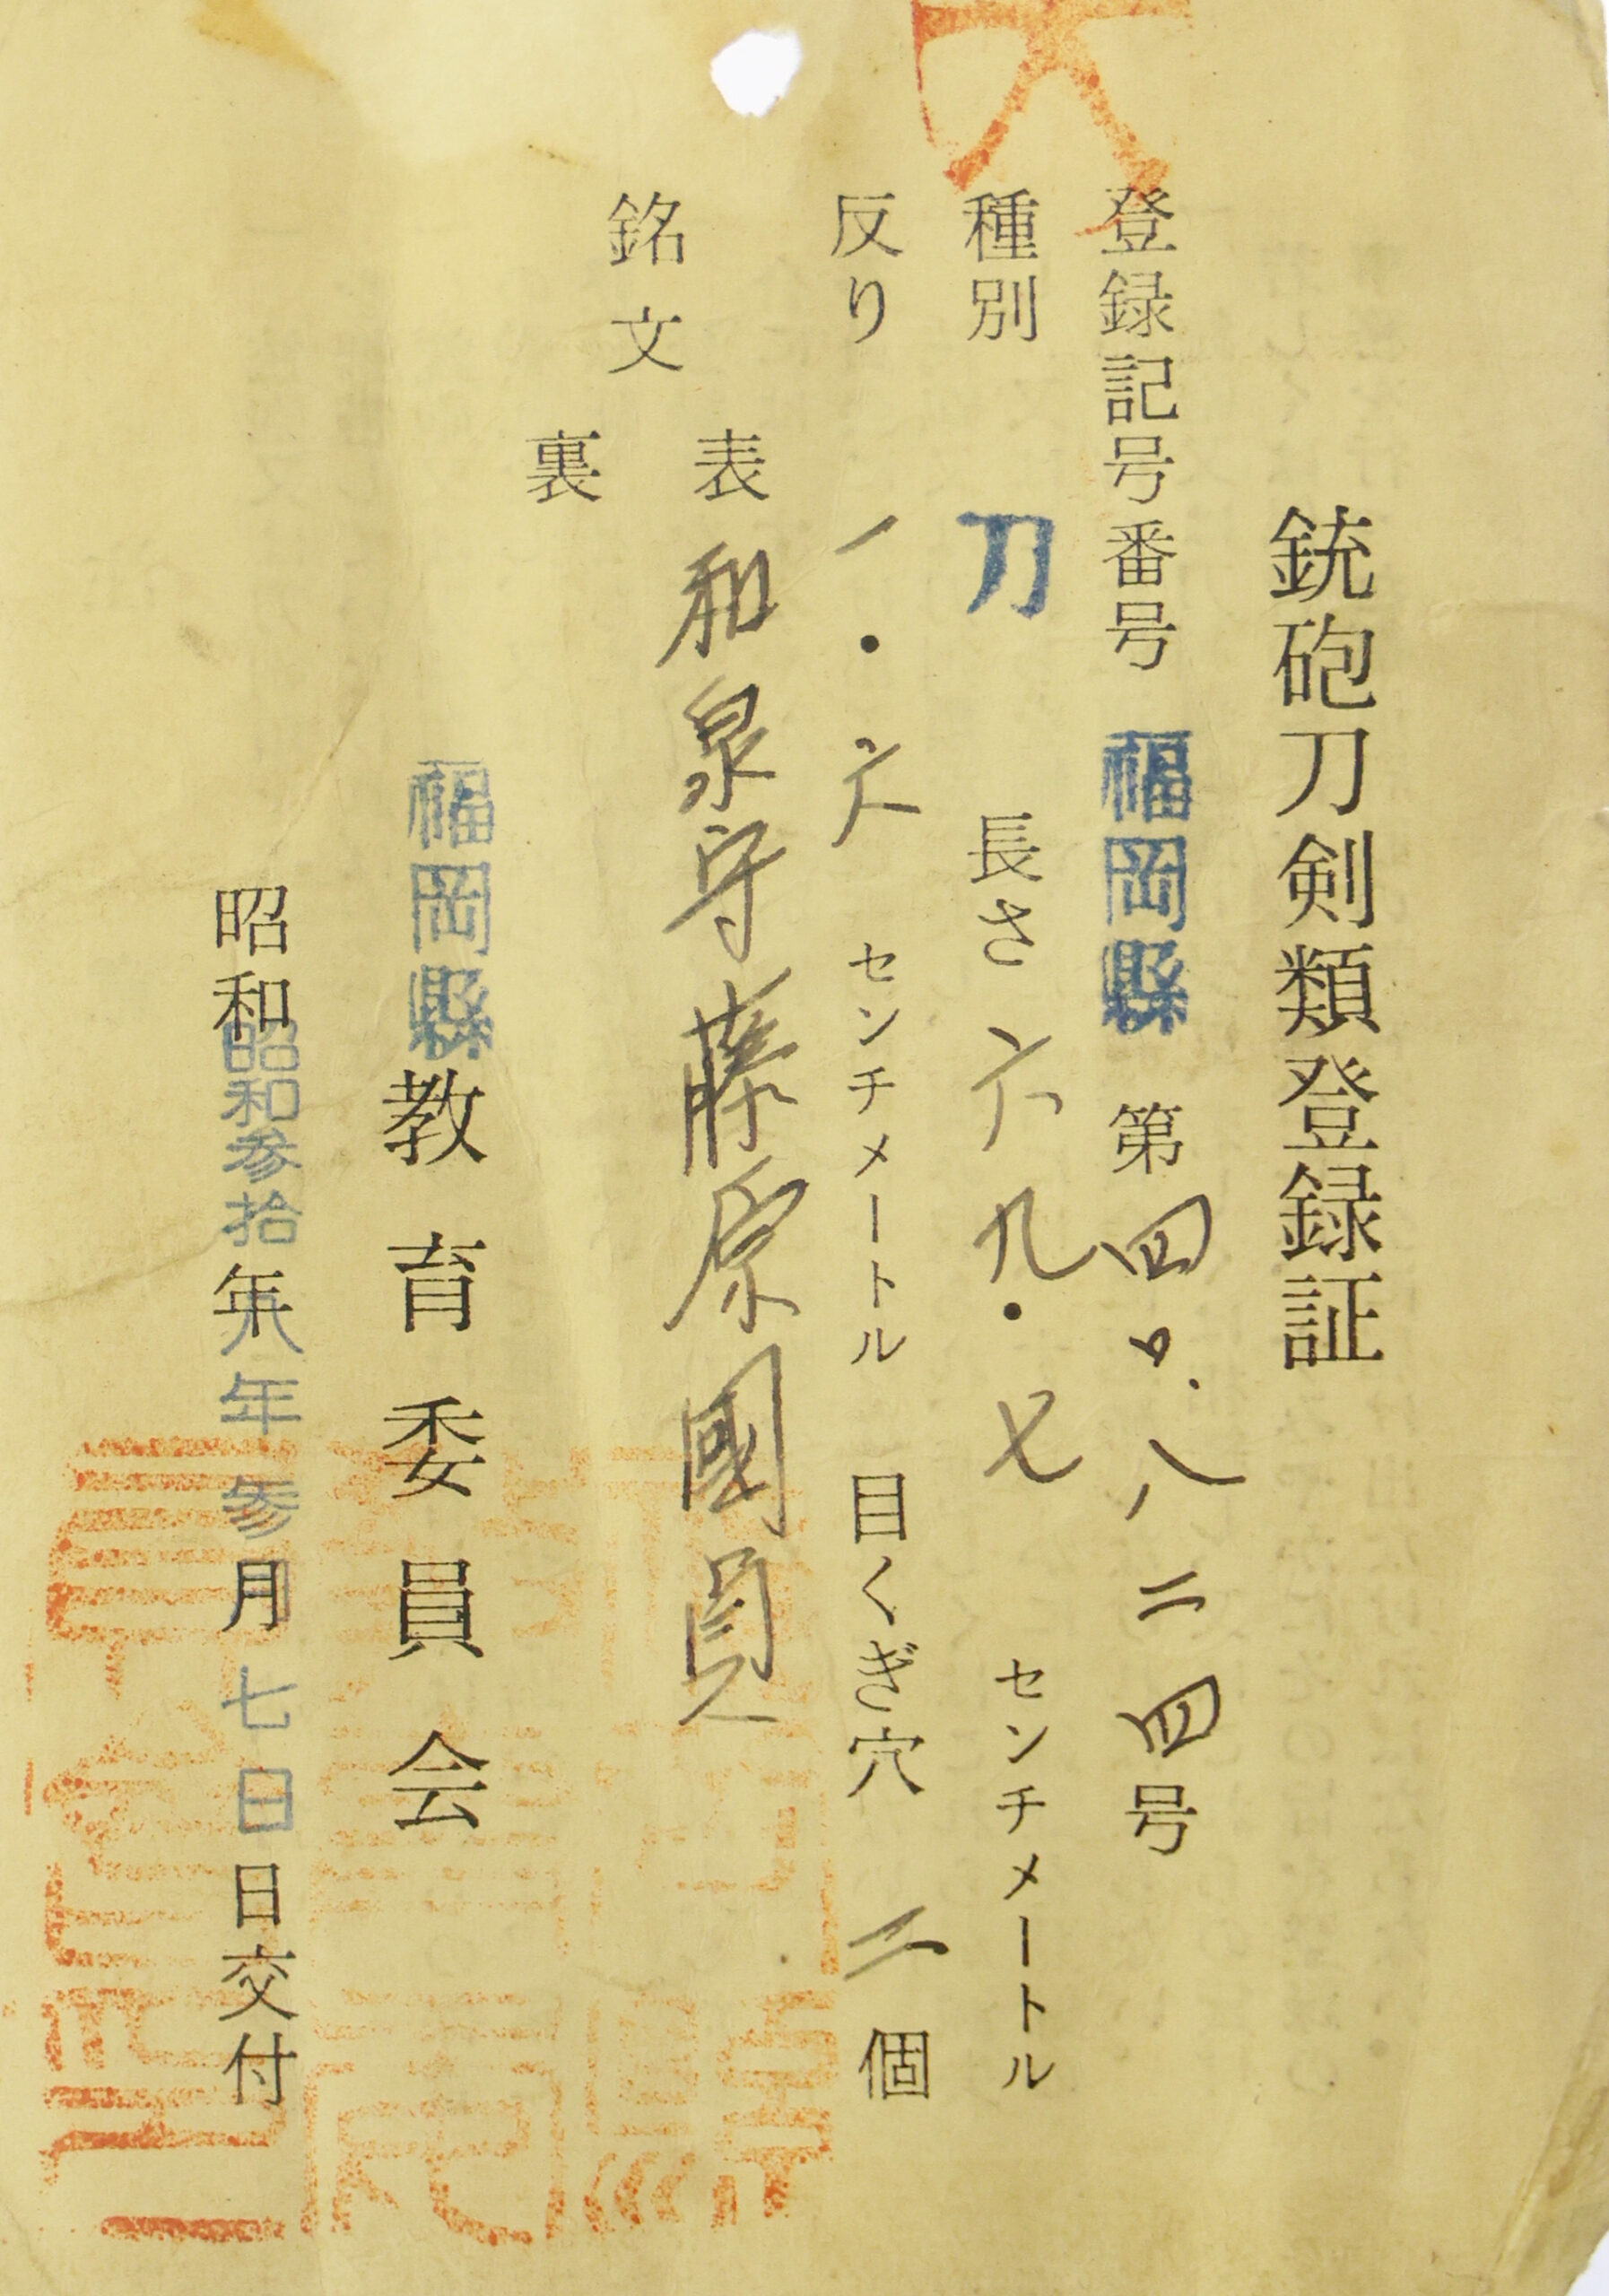 銃砲刀剣類登録証
登録記号番号 福岡縣 第四〇.八二四号
種別 刀 長さ 六九・七 センチメートル
反り 一・六 センチメートル 目くぎ穴 二個
銘文
表 和泉守藤原國貞
裏
福岡縣教育委員会
昭和昭和参拾八年年参月七日日交付